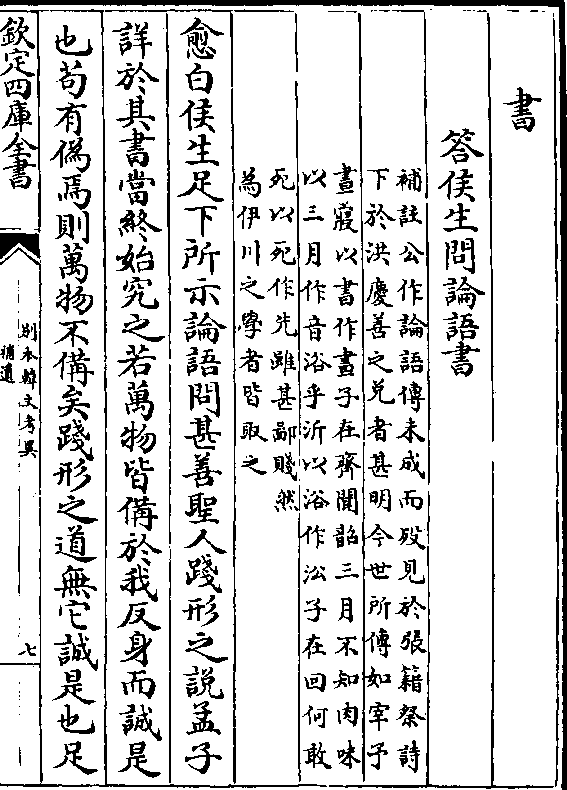 書
答侯生問論語書
補註公作論語傳未成而殁見於張籍祭詩
下於洪慶善之兑者甚明今世所傳如宰予
晝寢以書作晝子在齊聞韶三月不知肉味
以三月作音浴乎沂以浴作沿子在回何敢
死以死作先雖甚鄙賤然
為伊川之學者皆取之
愈白侯生足下所示論語問甚善聖人踐形之說孟子
詳於其書當終始究之若萬物皆備於我反身而誠是
也苟有偽焉則萬物不備矣踐形之道無它誠是也足
欽定四庫全書
别本韓文考異
補遺
七